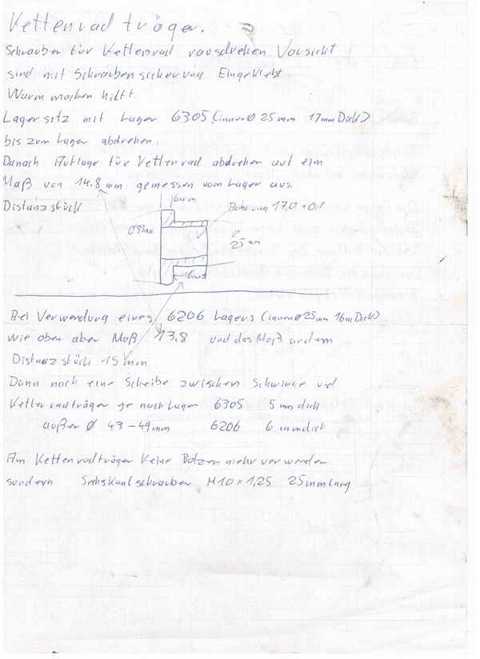 Kettenradträger.
Schrauben für Kettenrad rausdrehen Vorsicht
sind mit Schraubensicherung Eingeklebt
Warm machen hilft
Lagersitz mit Lager 6305 (innen Ø 25mm 17mm Dick)
bis zum Lager abdrehen.
Danach Auflage für Kettenrad abdrehen auf ein
Maß von 14.8mm gemessen vom Lager aus.
Distanzstück
Bohrung 17,0 +0,1
25mm
Bei Verwendung eines 6206 Lagers (innen Ø 25mm 16mm Dick)
wie oben aber Maß 13.8 und das Maß ändern
Distanzstück 15mm
Dann noch eine Scheibe zwischen Schwinge und
Kettenradträger je nach Lager 6305 5mm dick
außen Ø 43-44mm 6206 6mm dick
Am Kettenradträger keine Bolzen mehr verwenden
sondern Sechskantschrauben M10 x 1,25 25mm lang